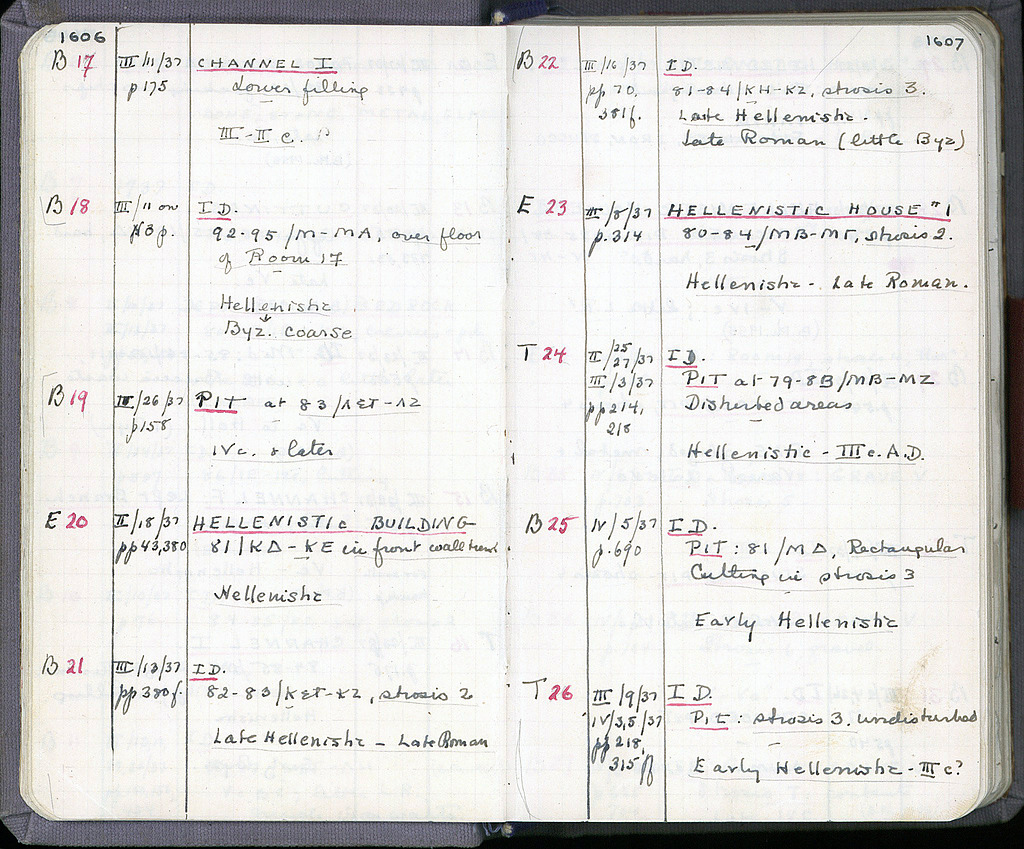 1606
B 17 III/11/37 CHANNEL I
p 175 Lower filling
III-II c. ?
B 18 III/11 on I D.
92-95/M-MA, over floor
of Room 17
Hellenistic
Byz. coarse
B 19 III/26/37 PIT at 83/ΛΣΤ-ΛΖ
p 158
IV c. & later
E 20 II/18/37 HELLENISTIC BUILDING
pp 43,380 81/ΚΔ-ΚΕ in front wall trench
Hellenistic
B 21 III/13/37 I D.
pp 380f. 82-83/ΚΣΤ-ΚΖ, strosis 2
Late Hellenistic - Late Roman
1607
B 22 III/16/37 I D.
pp 70, 81-84/ΚΗ-ΚΖ, strosis 3.
381f. Late Hellenistic -
Late Roman (little Byz)
E 23 III/8/37 HELLENISTIC HOUSE #1
p. 314 80-84/ΜΒ-ΜΓ, strosis 2.
Hellenistic - Late Roman.
T 24 II/25 27/37 I D.
III/3/37 PIT at 79-83/ΜΒ-ΜΖ
pp 214, Disturbed areas
218
Hellenistic - III c. A.D.
B 25 IV/5/37 I D.
p. 690 PIT: 81/ΜΔ, Rectangular
Cutting in strosis 3
Early Hellenistic
T 26 III/9/37 I D.
IV/3,5/37 Pit: strosis 3. undisturbed
pp 218,
315 ff Early Hellenistic - III c?